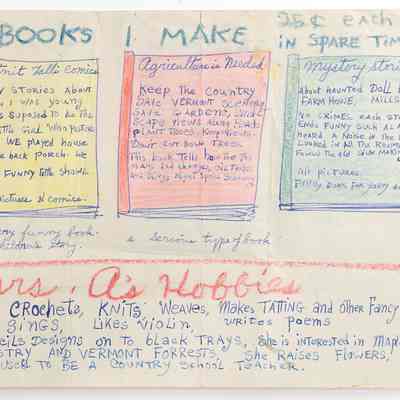 BOOKS I MAKE 25¢ each
IN SPARE TIM
Comics
Y STORIES ABOUT
I was young
SUPOSED TO be The
WE PLAYED house
BACK PORCH. We
FUNNY little Show
Pictures N comics.
funny book.
children's story.
Agriculture is Needed
KEEP THE COUNTRY
SAVE VERMONT SCENERY,
SAVE GARDENS,
PLANT TREES,
Don't CUT DOWN TREES
This book Tells how The
a serious type of book
Mystery stori
About Haunted Doll
FARM HOME, MILLS
NO CRIMES, each Sto
Ends FUNNY such As
HEARD A Noise in The
Looked in All The Rooms
FOUND The Old
All pictures.
FUNNY Ones For
rs. A's Hobbies
CROCHETS, KNITS WEAVES, MAKES TATTING and other Fancy
SINGS, LIKES VIOLIN, writes Poems
Designs on to black TRAYS, She is interested in Mapl
STRY AND VERMONT FORRESTS, She RAISES FLOWERS,
USED TO BE A COUNTRY School TEACHER.